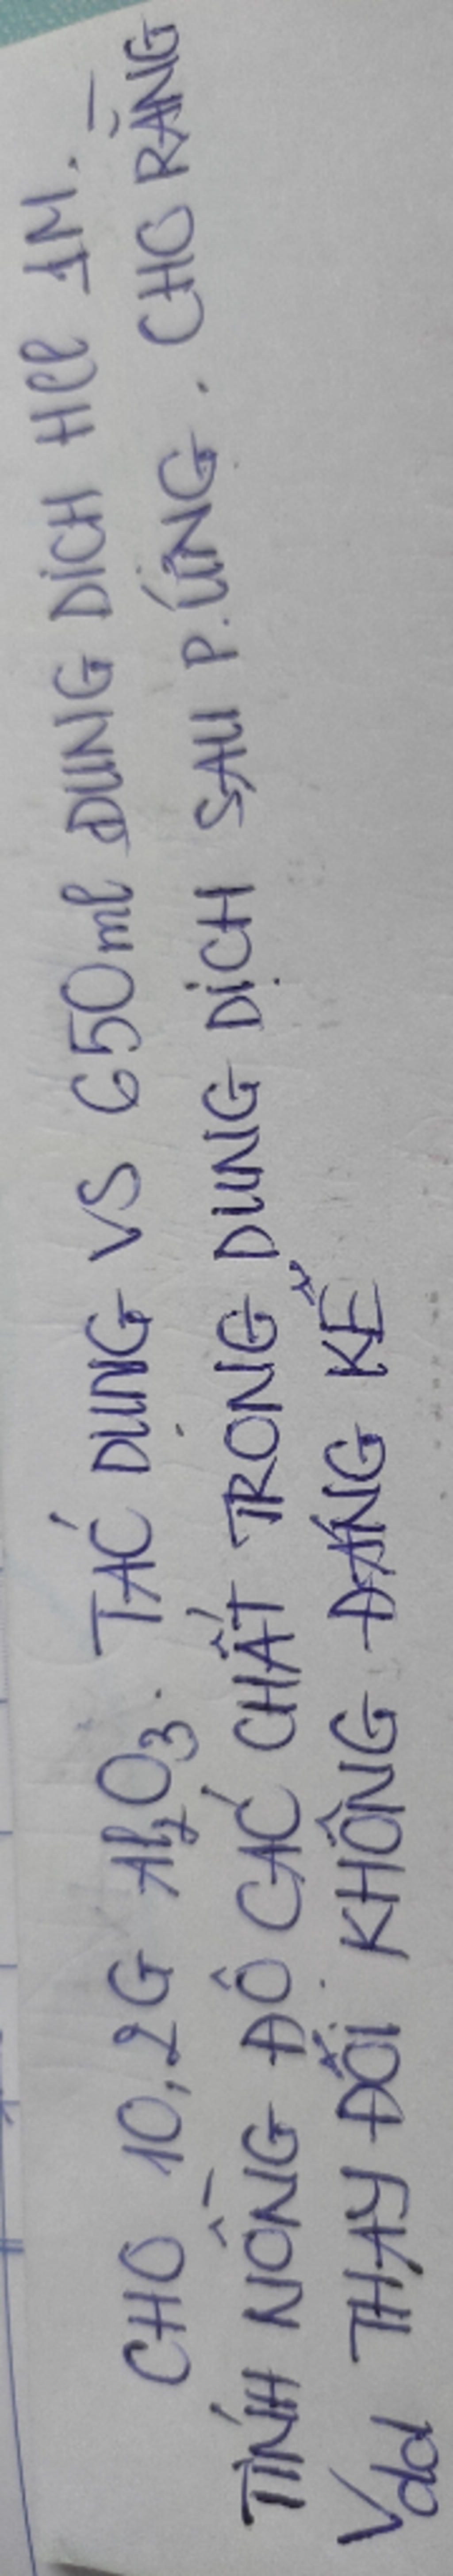 CHO 10,2G Al₂O₃. TÁC DỤNG VS 650ml DUNG DỊCH HCl 1M.
TÍNH NỒNG ĐÔ CÁC CHẤT TRONG DUNG DỊCH SAU P.ỨNG. CHO RẰNG
Vdd THAY ĐỔI KHÔNG ĐÁNG KỂ